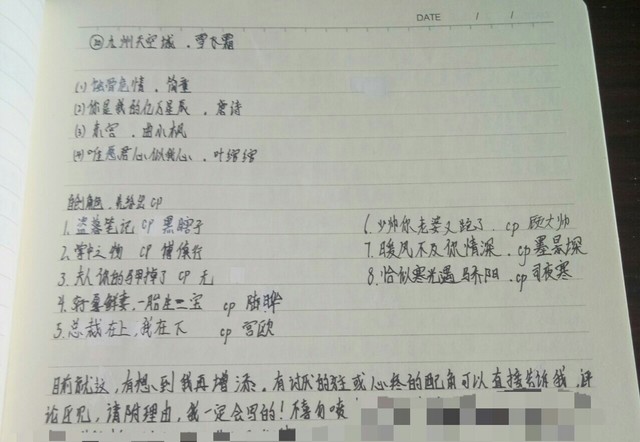 DATE / /
⑳九州天空城，雪飞霜
(1) 蚀骨危情，简童
(2) 你是我的亿万星辰，唐诗
(3) 东宫，曲小枫
(4) 唯愿君心似我心，叶缤缤
cp
1. 盗墓笔记 cp 黑瞎子
2. 掌中之物 cp 傅慎行
3. 夫人你的马甲掉了 cp 无
4. 替嫁鲜妻，一胎生二宝 cp
5. 总裁在上，我在下 cp 宫欧
6. 少帅你老婆又跑了．cp 顾大帅
7. 暖风不及你情深．cp 墨景琛
8. 恰似寒光遇骄阳．cp 司夜寒
目前就这，有想到我再增添．有讨厌的女主或心疼的配角可以直接告诉我，评
论区见，请附理由，我一定会回的！不喜勿喷